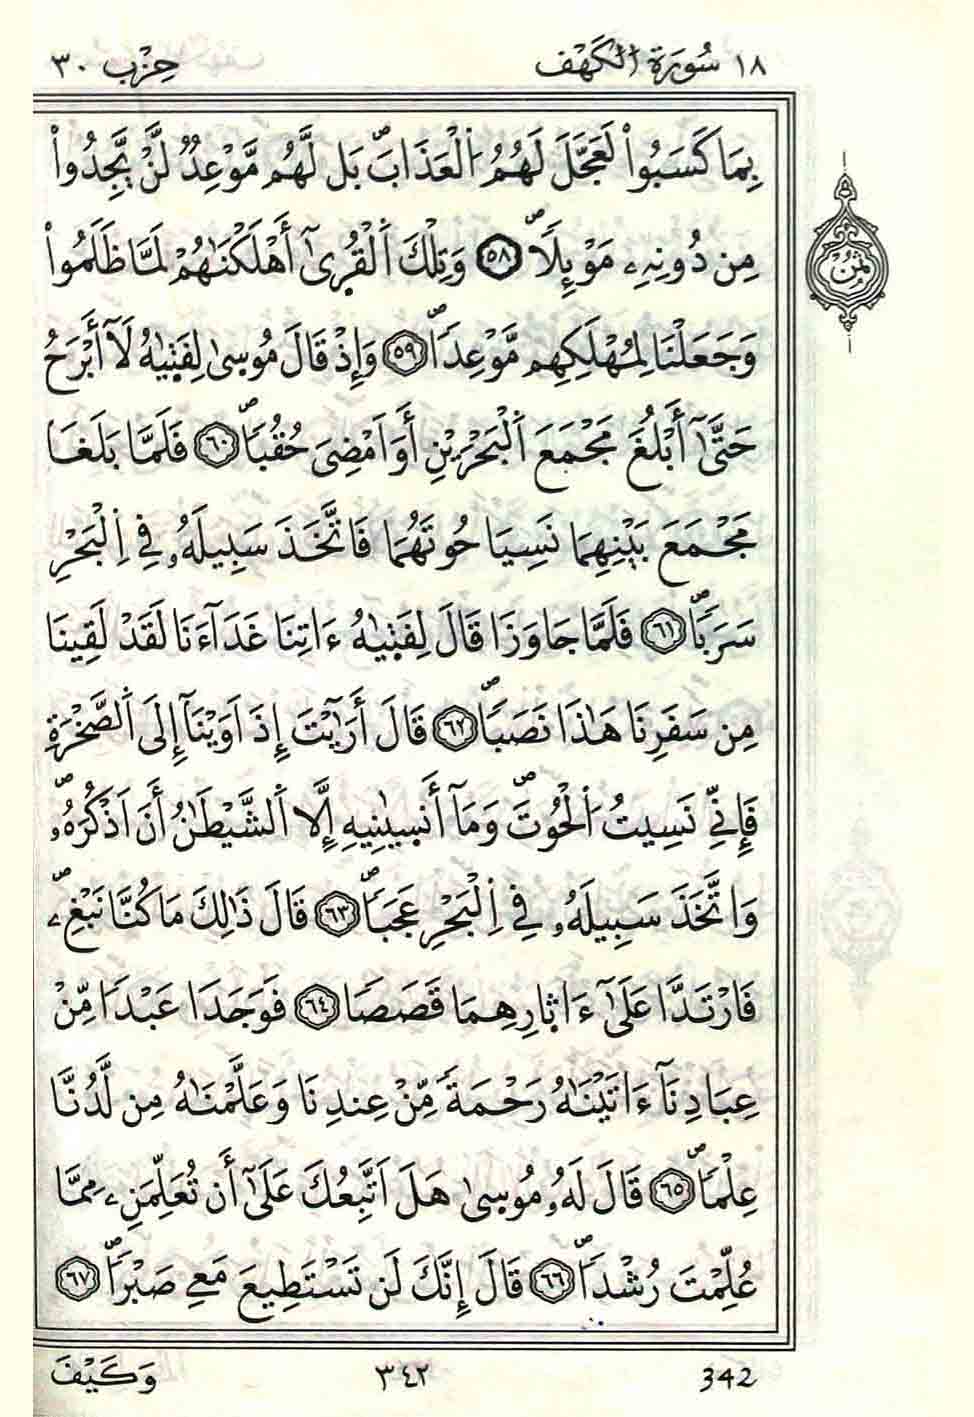 ١٨ سُورَةُ الْكَهْفِ حِزْب ٣٠
بِمَا كَسَبُواْ لَعَجَّلَ لَهُمُ اُ۬لْعَذَابَۖ بَل لَّهُم مَّوْعِدٞ لَّنْ يَّجِدُواْ
مِن دُونِهِۦ مَوْئِلاٗۖ ٥٨ وَتِلْكَ اَ۬لْقُر۪ىٰٓ أَهْلَكْنَٰهُمْ لَمَّا ظَلَمُواْ
وَجَعَلْنَا لِمُهْلَكِهِم مَّوْعِداٗۖ ٥٩ وَإِذْ قَالَ مُوس۪ىٰ لِفَت۪يٰهُ لَآ أَبْرَحُ
حَتَّىٰٓ أَبْلُغَ مَجْمَعَ اَ۬لْبَحْرَيْنِ أَوَ اَمْضِيَ حُقُباٗۖ ٦٠ فَلَمَّا بَلَغَا
مَجْمَعَ بَيْنِهِمَا نَسِيَا حُوتَهُمَا فَاتَّخَذَ سَبِيلَهُۥ فِي اِ۬لْبَحْرِ
سَرَباٗۖ ٦١ فَلَمَّا جَاوَزَا قَالَ لِفَت۪يٰهُ ءَاتِنَا غَدَآءَنَا لَقَدْ لَقِينَا
مِن سَفَرِنَا هَٰذَا نَصَباٗۖ ٦٢ قَالَ أَرَٰٓيْتَ إِذَ اَوَيْنَآ إِلَى اَ۬لصَّخْرَةِ
فَإِنِّي نَسِيتُ اُ۬لْحُوتَۖ وَمَآ أَنس۪يٰنِيهِ إِلَّا اَ۬لشَّيْطَٰنُ أَنَ اَذْكُرَهُۥۖ
وَاتَّخَذَ سَبِيلَهُۥ فِي اِ۬لْبَحْرِ عَجَباٗۖ ٦٣ قَالَ ذَٰلِكَ مَا كُنَّا نَبْغِۦۖ
فَارْتَدَّا عَلَىٰٓ ءَاث۪ارِهِمَا قَصَصاٗ ٦٤ فَوَجَدَا عَبْداٗ مِّنْ
عِبَادِنَآ ءَاتَيْنَٰهُ رَحْمَةٗ مِّنْ عِندِنَا وَعَلَّمْنَٰهُ مِن لَّدُنَّا
عِلْماٗۖ ٦٥ قَالَ لَهُۥ مُوس۪ىٰ هَلَ اَتَّبِعُكَ عَلَىٰٓ أَن تُعَلِّمَنِۦ مِمَّا
عُلِّمْتَ رُشْداٗۖ ٦٦ قَالَ إِنَّكَ لَن تَسْتَطِيعَ مَعِي صَبْراٗۖ ٦٧
وَكَيْفَ ٣٤٢ 342
ثُمُن